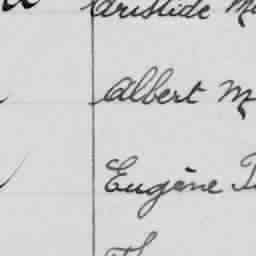 Aristide
Albert M
Eugène